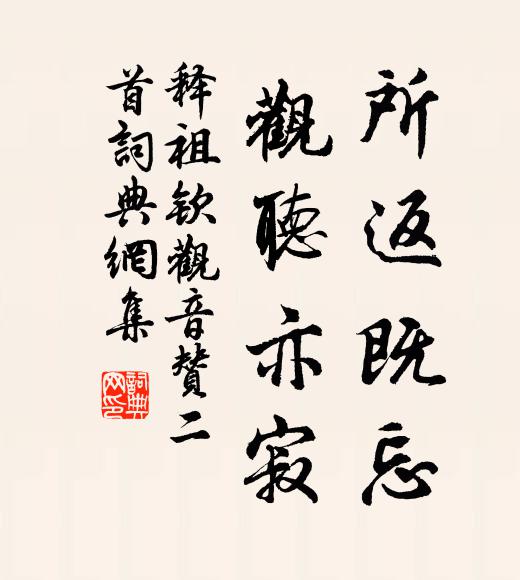 所返既忘
觀聽亦寂
释祖钦觀音賛二
首詞典網集
詞典
网印